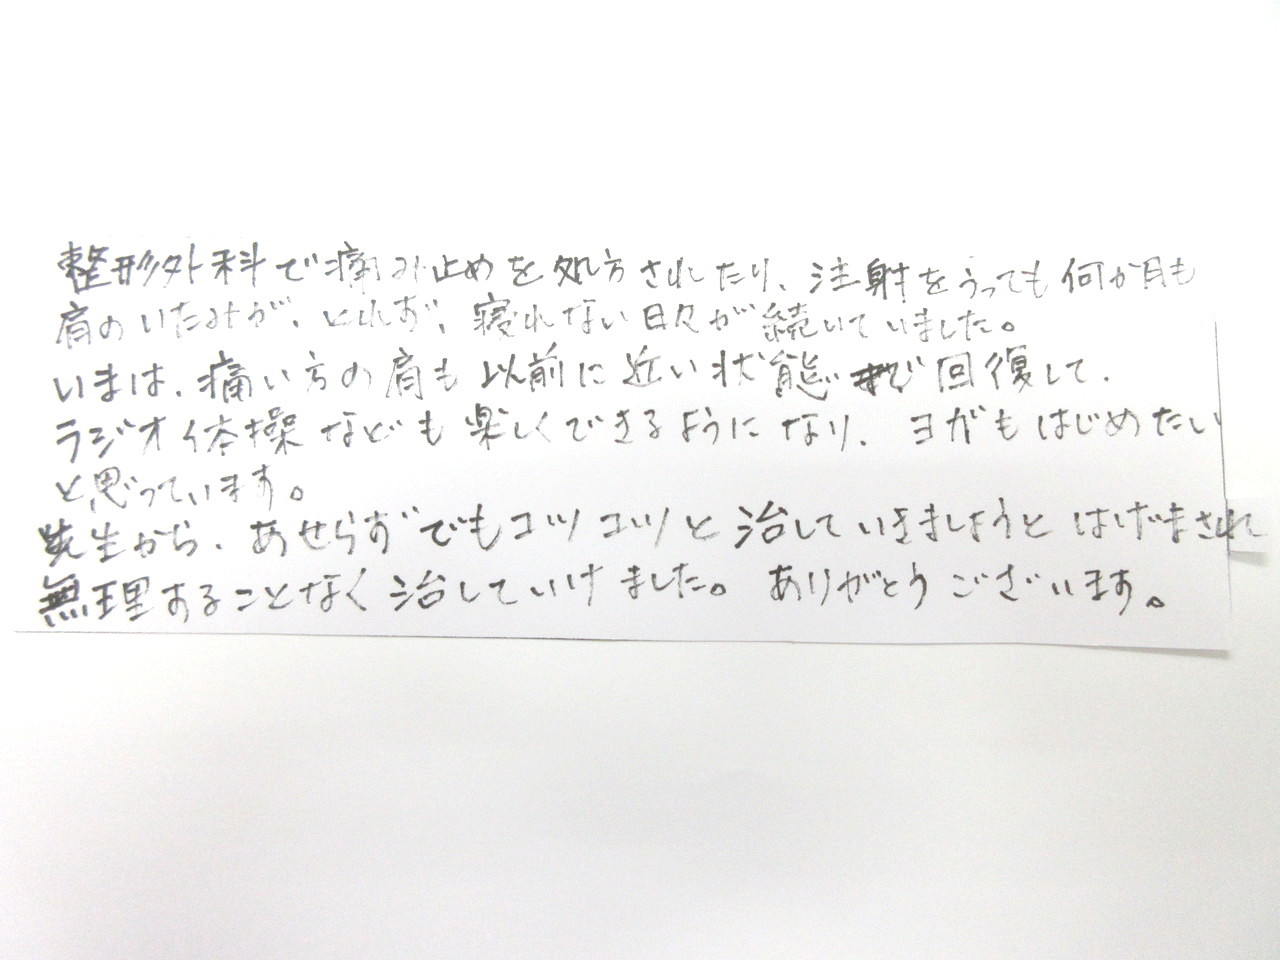 整形外科で痛み止めを処方されたり、注射をうっても何か月も
肩のいたみが、とれず、寝れない日々が続いていました。
いまは、痛い方の肩も以前に近い状態まで回復して、
ラジオ体操なども楽しくできるようになり、ヨガもはじめたい
と思っています。
先生から、あせらずでもコツコツと治していきましようとはげまされ
無理することなく治していけました。ありがとうございます。